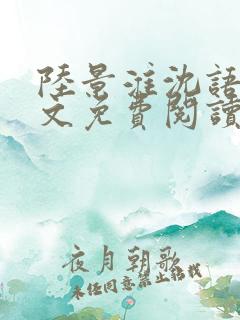 陸景淮沈語
文免費閱讀
夜月朝歌
未經同意禁止轉載